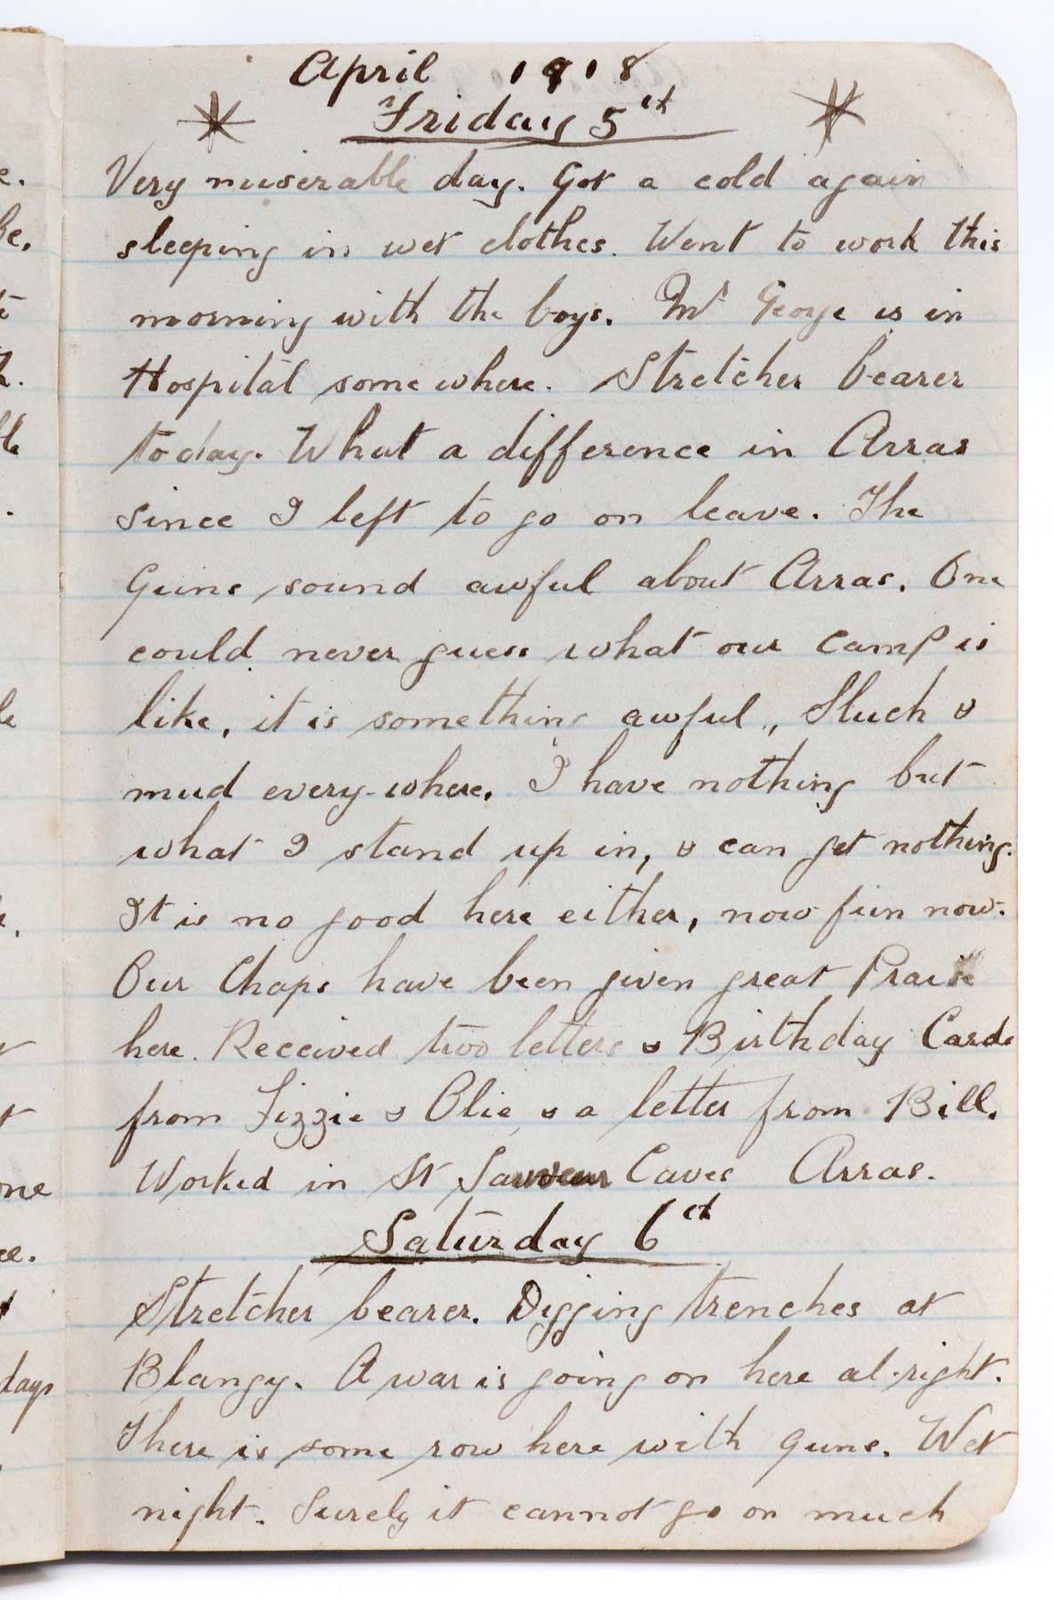 April 1918
Friday 5th
Very miserable day. Got a cold again
sleeping in wet clothes. Went to work this
morning with the boys. Mr George is in
Hospital somewhere. Stretcher bearer
today. What a difference in Arras
since I left to go on leave. The
Guns sound awful about Arras. One
could never guess what our Camp is
like, it is something awful, Sluch &
mud every-where. I have nothing but
what I stand up in, & can get nothing.
It is no good here either, now fun now.
Our Chaps have been given great Praise
here. Received two letters & Birthday Cards
from Lizzie & Olie & a letter from Bill.
Worked in St Sauveur Caves Arras.
Saturday 6th
Stretcher bearer. Digging trenches at
Blangy. A war is going on here al-right.
There is some row here with guns. Wet
night. Surely it cannot go on much
e.
one
days